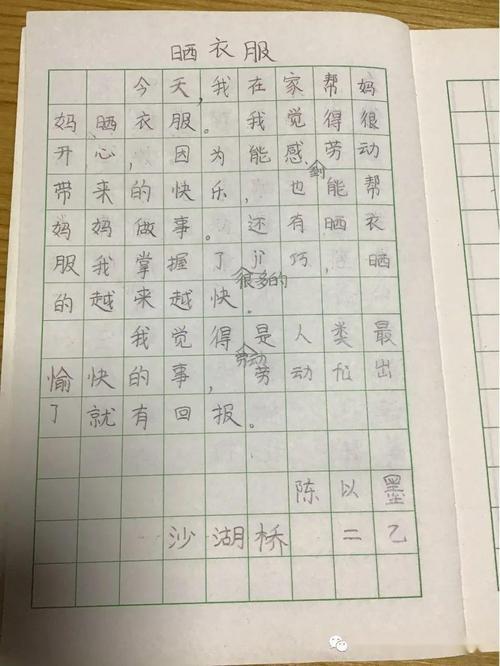 晒衣服
今天,我在家帮妈
妈晒衣服。我觉得很
开心,因为能感到劳动
带来的快乐,也能帮
妈妈做事。还有晒衣
服我掌握了很多的jì巧,晒
的越来越快。
我觉得劳动是人类最
愉快的事,劳动fù出
了就有回报。
陈以墨
沙湖桥 二乙